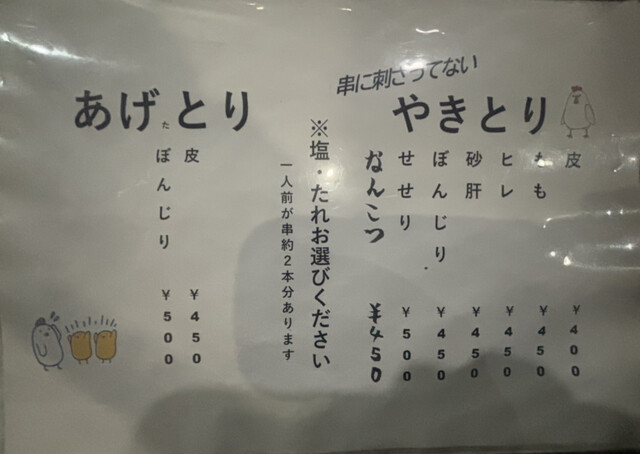 串に刺さってない
やきとり
皮 ¥400
もも ¥450
ヒレ ¥450
砂肝 ¥450
ぼんじり ¥450
せせり ¥500
なんこつ ¥450
※塩・たれお選びください
一人前が串約2本分あります
あげたとり
皮 ¥450
ぼんじり ¥500